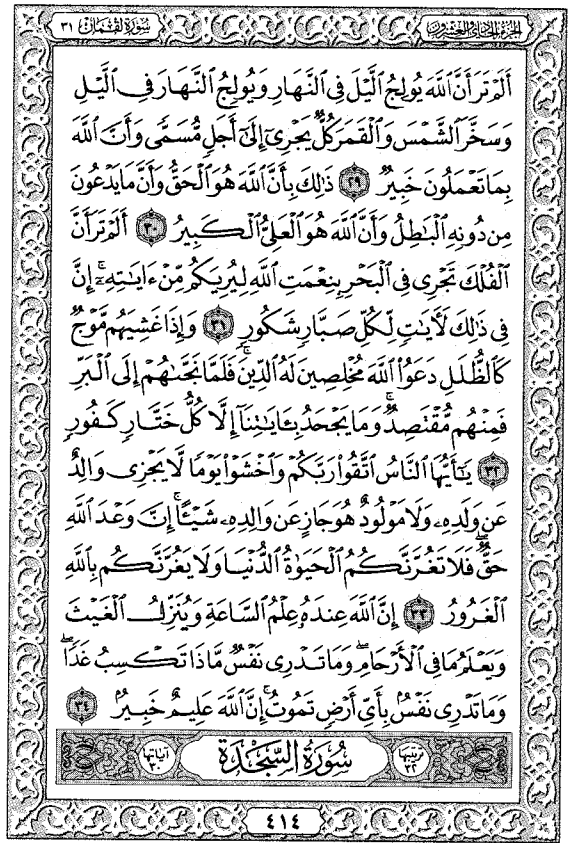 سورة لقمان ٣١
الجزء الحادي والعشرون
أَلَمْ تَرَ أَنَّ ٱللَّهَ يُولِجُ ٱلَّيْلَ فِى ٱلنَّهَارِ وَيُولِجُ ٱلنَّهَارَ فِى ٱلَّيْلِ
وَسَخَّرَ ٱلشَّمْسَ وَٱلْقَمَرَ كُلٌّ يَجْرِىٓ إِلَىٰٓ أَجَلٍ مُّسَمًّى وَأَنَّ ٱللَّهَ
بِمَا تَعْمَلُونَ خَبِيرٌ ٢٩ ذَٰلِكَ بِأَنَّ ٱللَّهَ هُوَ ٱلْحَقُّ وَأَنَّ مَا يَدْعُونَ
مِن دُونِهِ ٱلْبَٰطِلُ وَأَنَّ ٱللَّهَ هُوَ ٱلْعَلِىُّ ٱلْكَبِيرُ ٣٠ أَلَمْ تَرَ أَنَّ
ٱلْفُلْكَ تَجْرِى فِى ٱلْبَحْرِ بِنِعْمَتِ ٱللَّهِ لِيُرِيَكُم مِّنْ ءَايَٰتِهِۦٓ ۚ إِنَّ
فِى ذَٰلِكَ لَءَايَٰتٍ لِّكُلِّ صَبَّارٍ شَكُورٍ ٣١ وَإِذَا غَشِيَهُم مَّوْجٌ
كَٱلظُّلَلِ دَعَوُا۟ ٱللَّهَ مُخْلِصِينَ لَهُ ٱلدِّينَ ۚ فَلَمَّا نَجَّىٰهُمْ إِلَى ٱلْبَرِّ
فَمِنْهُم مُّقْتَصِدٌ ۚ وَمَا يَجْحَدُ بِـَٔايَٰتِنَآ إِلَّا كُلُّ خَتَّارٍ كَفُورٍ
٣٢ يَٰٓأَيُّهَا ٱلنَّاسُ ٱتَّقُوا۟ رَبَّكُمْ وَٱخْشَوْا۟ يَوْمًا لَّا يَجْزِى وَالِدٌ
عَن وَلَدِهِۦ وَلَا مَوْلُودٌ هُوَ جَازٍ عَن وَالِدِهِۦ شَيْـًٔا ۚ إِنَّ وَعْدَ ٱللَّهِ
حَقٌّ ۖ فَلَا تَغُرَّنَّكُمُ ٱلْحَيَوٰةُ ٱلدُّنْيَا وَلَا يَغُرَّنَّكُم بِٱللَّهِ
ٱلْغَرُورُ ٣٣ إِنَّ ٱللَّهَ عِندَهُۥ عِلْمُ ٱلسَّاعَةِ وَيُنَزِّلُ ٱلْغَيْثَ
وَيَعْلَمُ مَا فِى ٱلْأَرْحَامِ ۖ وَمَا تَدْرِى نَفْسٌ مَّاذَا تَكْسِبُ غَدًا ۖ
وَمَا تَدْرِى نَفْسٌۢ بِأَىِّ أَرْضٍ تَمُوتُ ۚ إِنَّ ٱللَّهَ عَلِيمٌ خَبِيرٌۢ ٣٤
ترتيبها ٣٢ سورة السجدة آياتها ٣٠
٤١٤